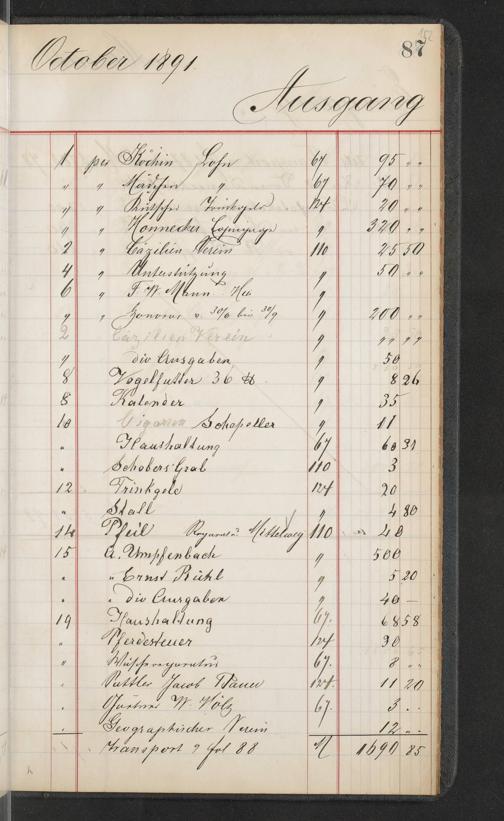 87
October 1891
Ausgang
1 per Köchin Lohn 67 95 " "
" " Mädchen " 67 70 " "
" " Kutscher Trinkgeld 124 20 " "
" " Honnecker Equipage " 320 " "
2 " Cäzilien Verein 110 25 50
4 " Unterstützung " 50 " "
6 " F. W. Mann "
" " Honorar v. 30/6 bis 30/9 " 200 " "
2 Cäzilien Verein " " " " "
" div Ausgaben " 50
8 Vogelfutter 36 ℔ " 8 26
8 Kalender " 35
10 Cigarren Schepeller " 11
" Haushaltung 67 60 31
" Schobers Grab 110 3
12 Trinkgeld 124 20
" Stall " 4 80
14 Pfeil Reparatur Mittelweg 110 40
15 A. Umpfenbach " 500
" " Ernst Rühl " 5 20
" " div Ausgaben " 40 —
19 Haushaltung 67. 68 58
" Pferdesteuer 124 30
" 67. 8 " "
" Sattler Jacob 124. 11 20
" Gärtner W. Völz 67. 3 " "
" Geographischer Verein " 12 " "
Transport 2 fol 88 M 1690 85